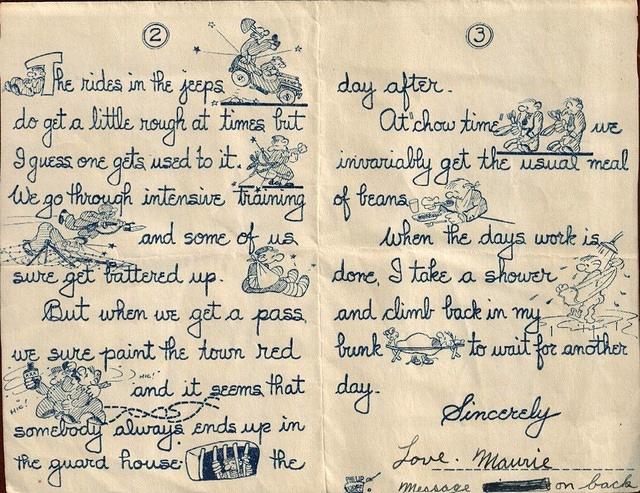 2
The rides in the jeeps
do get a little rough at times but
I guess one gets used to it.
We go through intensive training
and some of us
sure get battered up.
But when we get a pass
we sure paint the town red
HIC!
HIC!
and it seems that
somebody always ends up in
the guard house the
3
day after.
At "chow time" we
invariably get the usual meal
of beans
When the days work is
done, I take a shower
and climb back in my
bunk to wait for another
day.
Sincerely
Love. Maurie
message on back